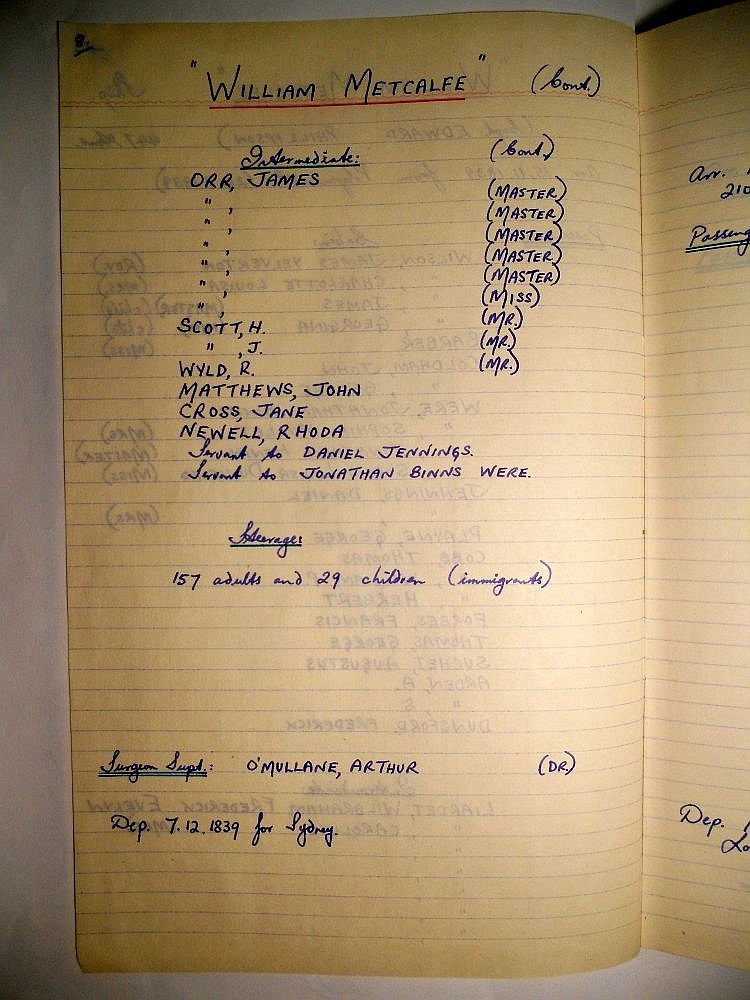 8.
"WILLIAM METCALFE" (Cont.)
Intermediate: (Cont.)
ORR, JAMES
" , (MASTER)
" , (MASTER)
" , (MASTER)
" , (MASTER)
" , (MASTER)
" , (MISS)
SCOTT, H. (MR.)
" , J. (MR.)
WYLD, R. (MR.)
MATTHEWS, JOHN
CROSS, JANE
NEWELL, RHODA
Servant to DANIEL JENNINGS.
Servant to JONATHAN BINNS WERE.
Steerage:
157 adults and 29 children (immigrants)
Surgeon Supt.: O'MULLANE, ARTHUR (DR.)
Dep. 7.12.1839 for Sydney.
Arr.
210
Dep.